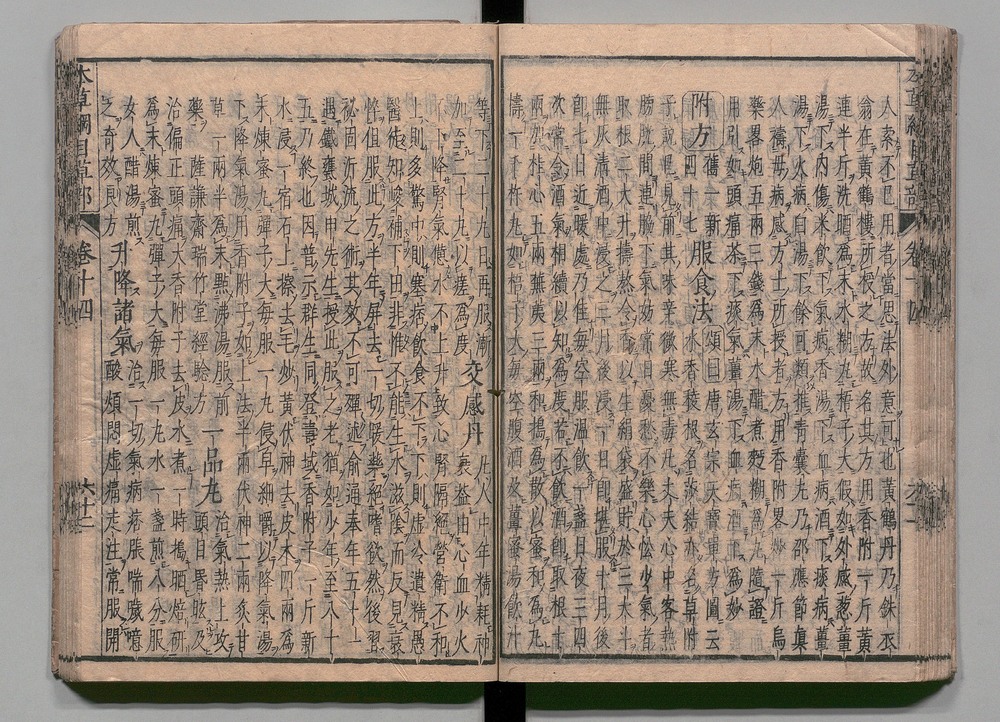 本草綱目草部 卷十四
人索不已用者當思法外意可也黃鶴丹乃銖衣
翁在黃鶴樓所授之方故名其方用香附一斤黃
連半斤洗晒爲末水糊丸梧子大假如外感葱薑
湯下內傷米飲下氣病香湯下血病酒下痰病薑
湯下火病白湯下餘可類推青囊丸乃邵應節真
人禱母病感方士所授者方用香附畧炒一斤烏
藥畧炮五兩三錢爲末水醋煮麪糊丸隨證
用引如頭痛茶下痰氣薑湯下血病酒下爲妙
附方 舊一新四十七 服食法 頌曰唐玄宗天寶單方圖云
水香稜根名莎結亦名草附
子說已見前其味辛微寒無毒凡丈夫心中客熱
膀胱間連脇下氣妨常日憂愁不樂心忪少氣者
取根二大升擣熬令香以生絹袋盛貯於三大斗
無灰清酒中浸之三月後浸一日即堪服十月後
即七日近暖處乃佳每空腹溫飲一盞日夜三四
次常令酒氣相續以知爲度若不飲酒即取根十
兩加桂心五兩蕪荑三兩和搗爲散以蜜和爲丸
擣一千杵丸如梧子大每空腹酒及薑蜜湯飲汁
等下二十丸日再服漸
加至三十丸以瘥爲度
交感丹
凡人中年精耗神
衰蓋由心血少火
不下降腎氣憊水不上升致心腎隔絕營衛不和
上則多驚中則塞痞飲食不下下則虛冷遺精愚
醫徒知峻補下田非惟不能生水滋陰而反見衰
悴但服此方半年屏去一切暖藥絕嗜慾然後習
秘固泝流之術其效不可殫述俞通奉年五十一
遇鐵甕城申先生授此服之老猶如少年至八十
五乃終也因普示群生同登壽域香附子一斤新
水浸一宿石上擦去毛炒黃茯神去皮木四兩爲
末煉蜜丸彈子大每服一丸侵早細嚼以降氣湯
下降氣湯用香附子如上法半兩茯神二兩炙甘
草一兩半爲末點沸湯服前
藥 薩謙齋瑞竹堂經驗方
一品丸
治氣熱上攻
頭目昏眩及
治偏正頭痛大香附子去皮水煮一時搗晒焙研
爲末煉蜜丸彈子大每服一丸水一盞煎八分服
女人醋湯煎
之奇效良方
升降諸氣
治一切氣病痞脹喘噦噫
酸煩悶虛痛走注常服開
卷十四 六十二